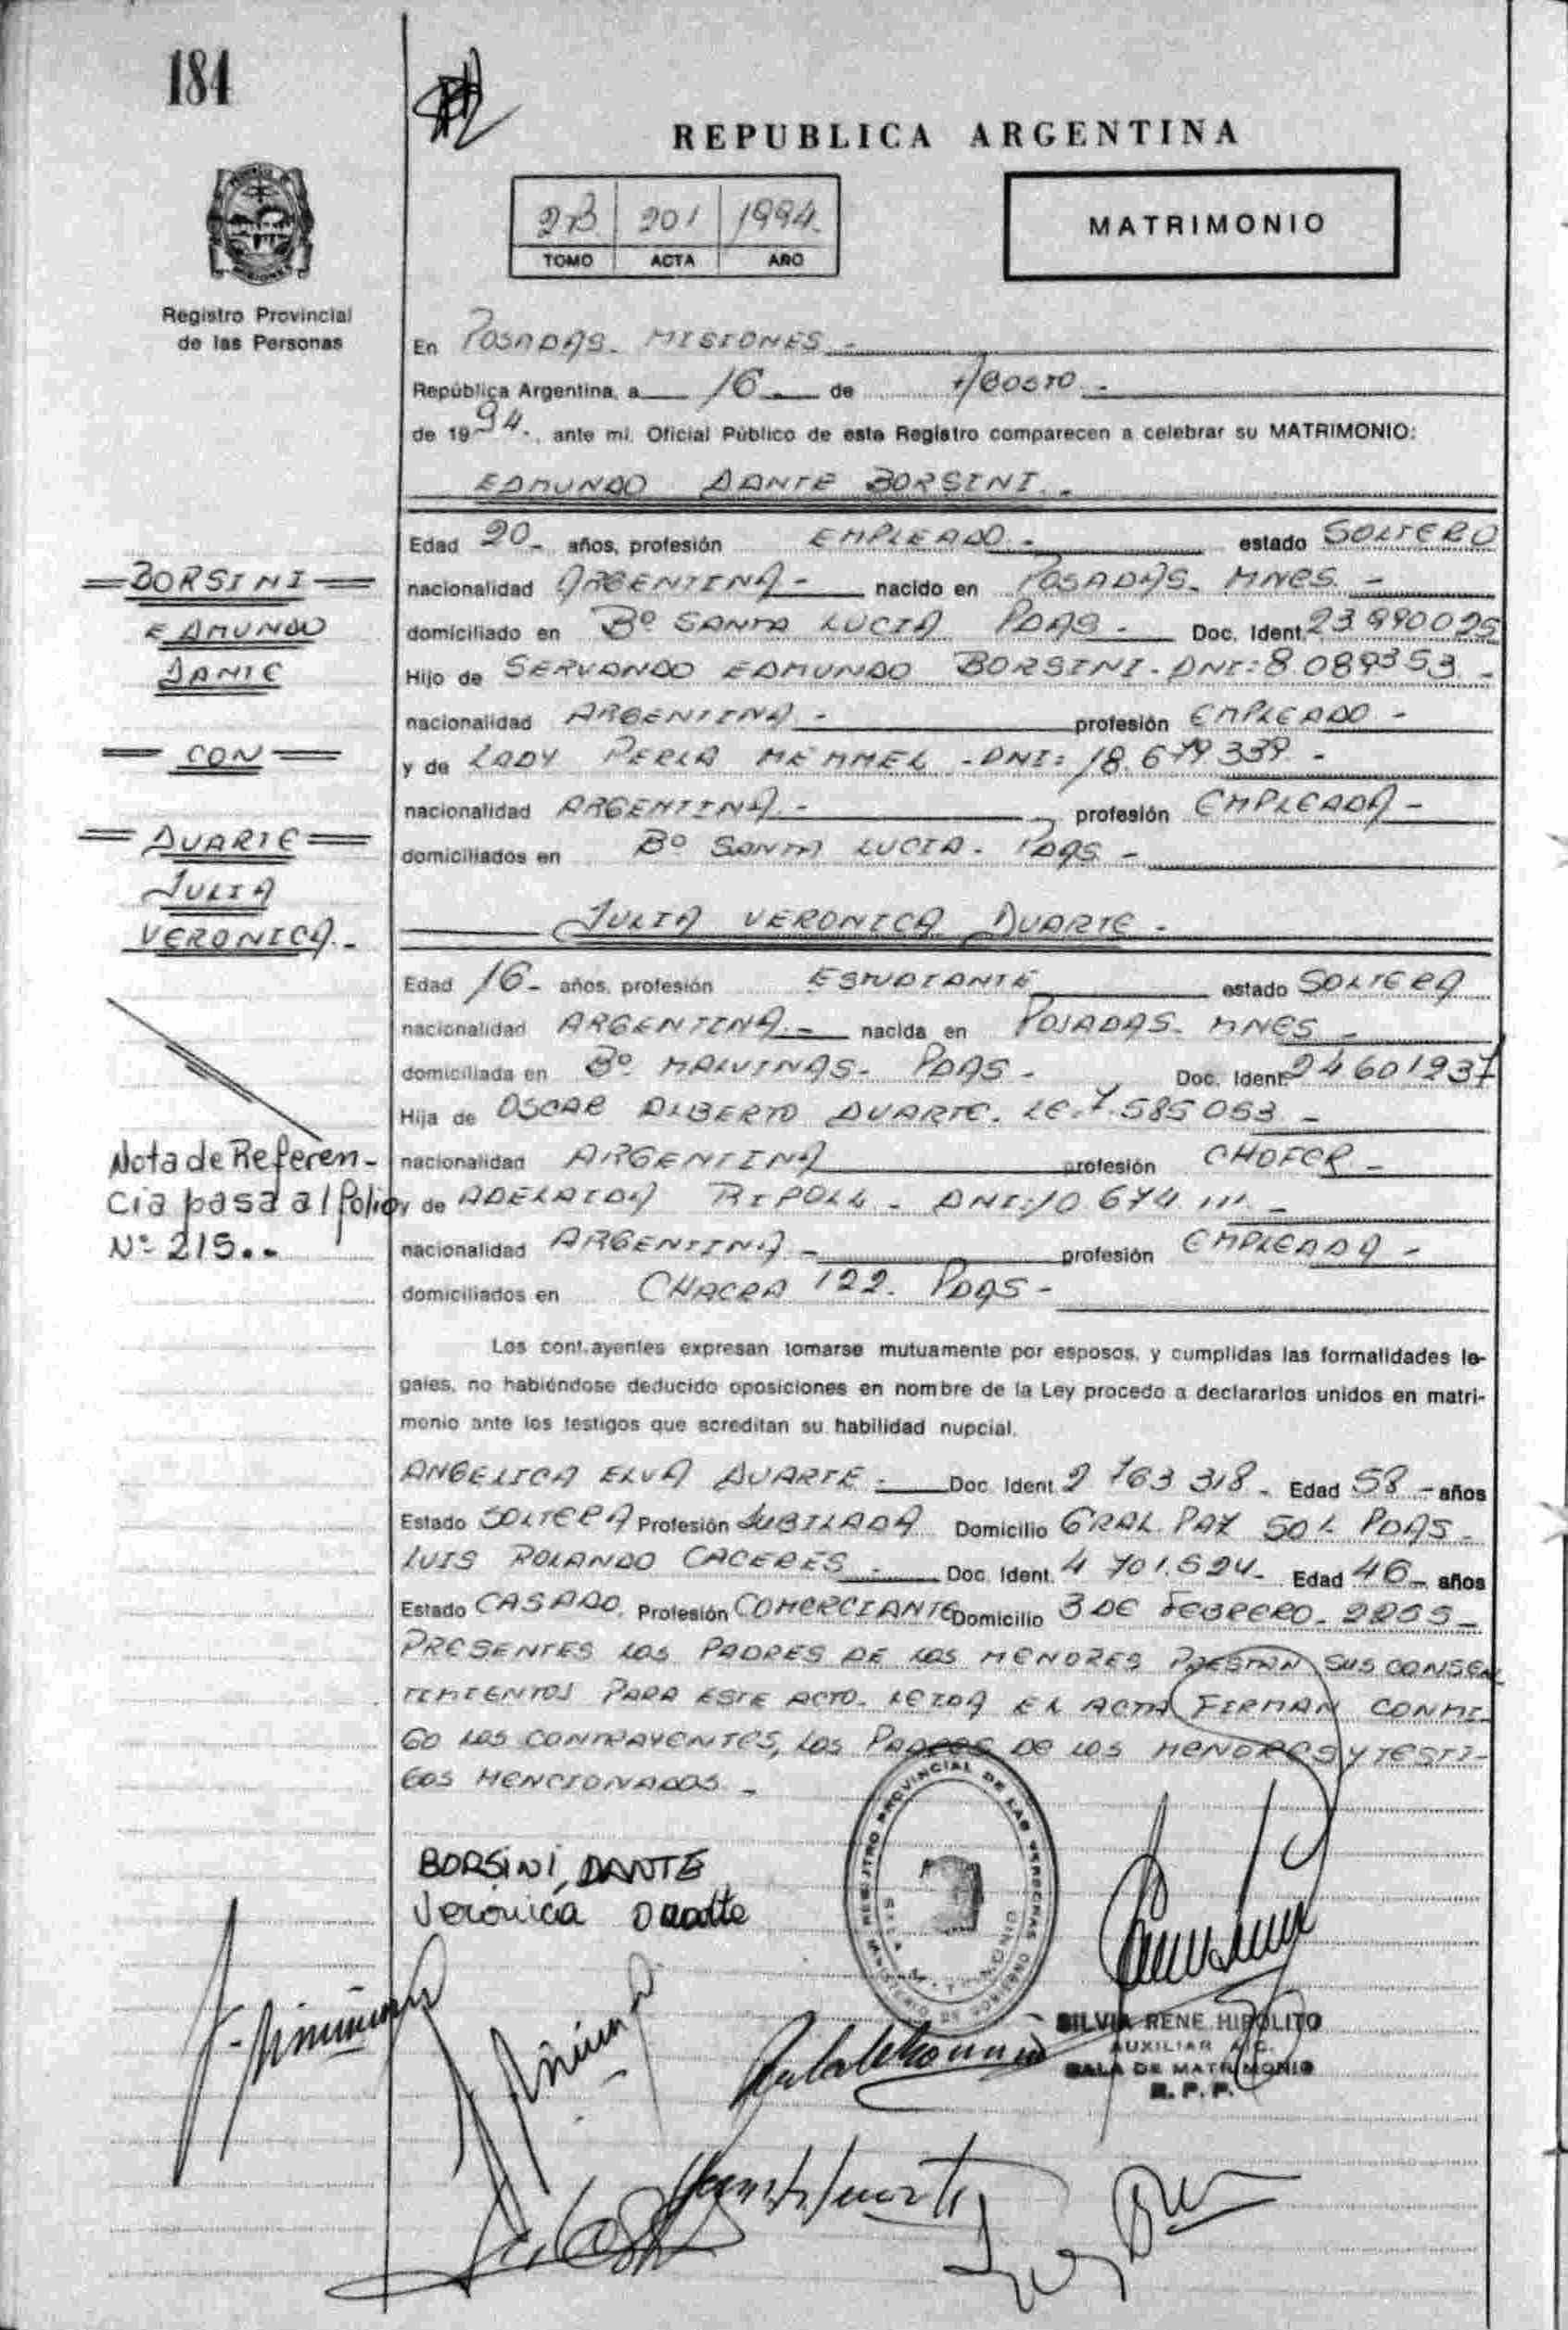 184
REPUBLICA ARGENTINA
2B 201 1994.
TOMO ACTA AÑO
MATRIMONIO
Registro Provincial
de las Personas
En POSADAS - MISIONES -
República Argentina, a 16 de AGOSTO -
de 1994., ante mi, Oficial Público de este Registro comparecen a celebrar su MATRIMONIO:
EDMUNDO DANTE BORSINI. -
Edad 20- años, profesión EMPLEADO - estado SOLTERO
nacionalidad ARGENTINA - nacido en POSADAS - MNES. -
domiciliado en Bº SANTA LUCIA PDAS - Doc. Ident. 23.990025
Hijo de SERVANDO EDMUNDO BORSINI - DNI: 8.089353. -
nacionalidad ARGENTINA - profesión EMPLEADO -
y de LADY PERLA MEMMEL - DNI: 18.679.339. -
nacionalidad ARGENTINA. - profesión EMPLEADA -
domiciliados en Bº SANTA LUCIA - PDAS -
BORSINI
EDMUNDO
DANTE
CON
DUARTE
JULIA
VERONICA. -
JULIA VERONICA DUARTE -
Edad 16- años, profesión ESTUDIANTE estado SOLTERA
nacionalidad ARGENTINA. - nacida en POSADAS - MNES -
domiciliada en Bº MALVINAS - PDAS - Doc. Ident. 24601937
Hija de OSCAR ALBERTO DUARTE. LE. 7.585 053 -
nacionalidad ARGENTINA profesión CHOFER -
y de ADELAIDA RIPOLL - DNI: 10.674.111. -
nacionalidad ARGENTINA - profesión EMPLEADA -
domiciliados en CHACRA 122. PDAS -
Nota de Referen-
cia pasa al folio
Nº 215..
Los contrayentes expresan tomarse mutuamente por esposos, y cumplidas las formalidades le-
gales, no habiéndose deducido oposiciones en nombre de la Ley procedo a declararlos unidos en matri-
monio ante los testigos que acreditan su habilidad nupcial.
ANGELICA ELVA DUARTE - Doc. Ident. 2 763 318 - Edad 58 - años
Estado SOLTERA Profesión JUBILADA Domicilio GRAL. PAZ 501 PDAS -
LUIS ROLANDO CACERES - Doc. Ident. 4 701.524 - Edad 46 - años
Estado CASADO. Profesión COMERCIANTE Domicilio 3 DE FEBRERO - 2255 -
PRESENTES LOS PADRES DE LOS MENORES PRESTAN SUS CONSEN
TIMIENTOS PARA ESTE ACTO - LEIDA EL ACTA FIRMAN CONMI-
GO LOS CONTRAYENTES, LOS PADRES DE LOS MENORES Y TESTI-
GOS MENCIONADOS -
BORSINI, DANTE
Verónica Duarte
REGISTRO PROVINCIAL DE LAS PERSONAS
MINISTERIO DE GOBIERNO
SILVIA RENE HIPOLITO
AUXILIAR A/C.
SALA DE MATRIMONIO
R. P. P.